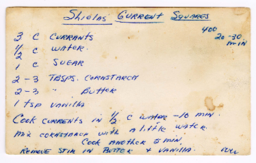 Shielas Currant Squares
400
20-30 min
3 C Currants
1/2 C Water
1 C Sugar
2-3 Tbsps. Cornstarch
2-3 " Butter
1 tsp Vanilla
Cook Currents in 1/2 C Water -10 min.
Mix cornstarch with a little water
Cook another 5 min.
Remove stir in Butter + Vanilla